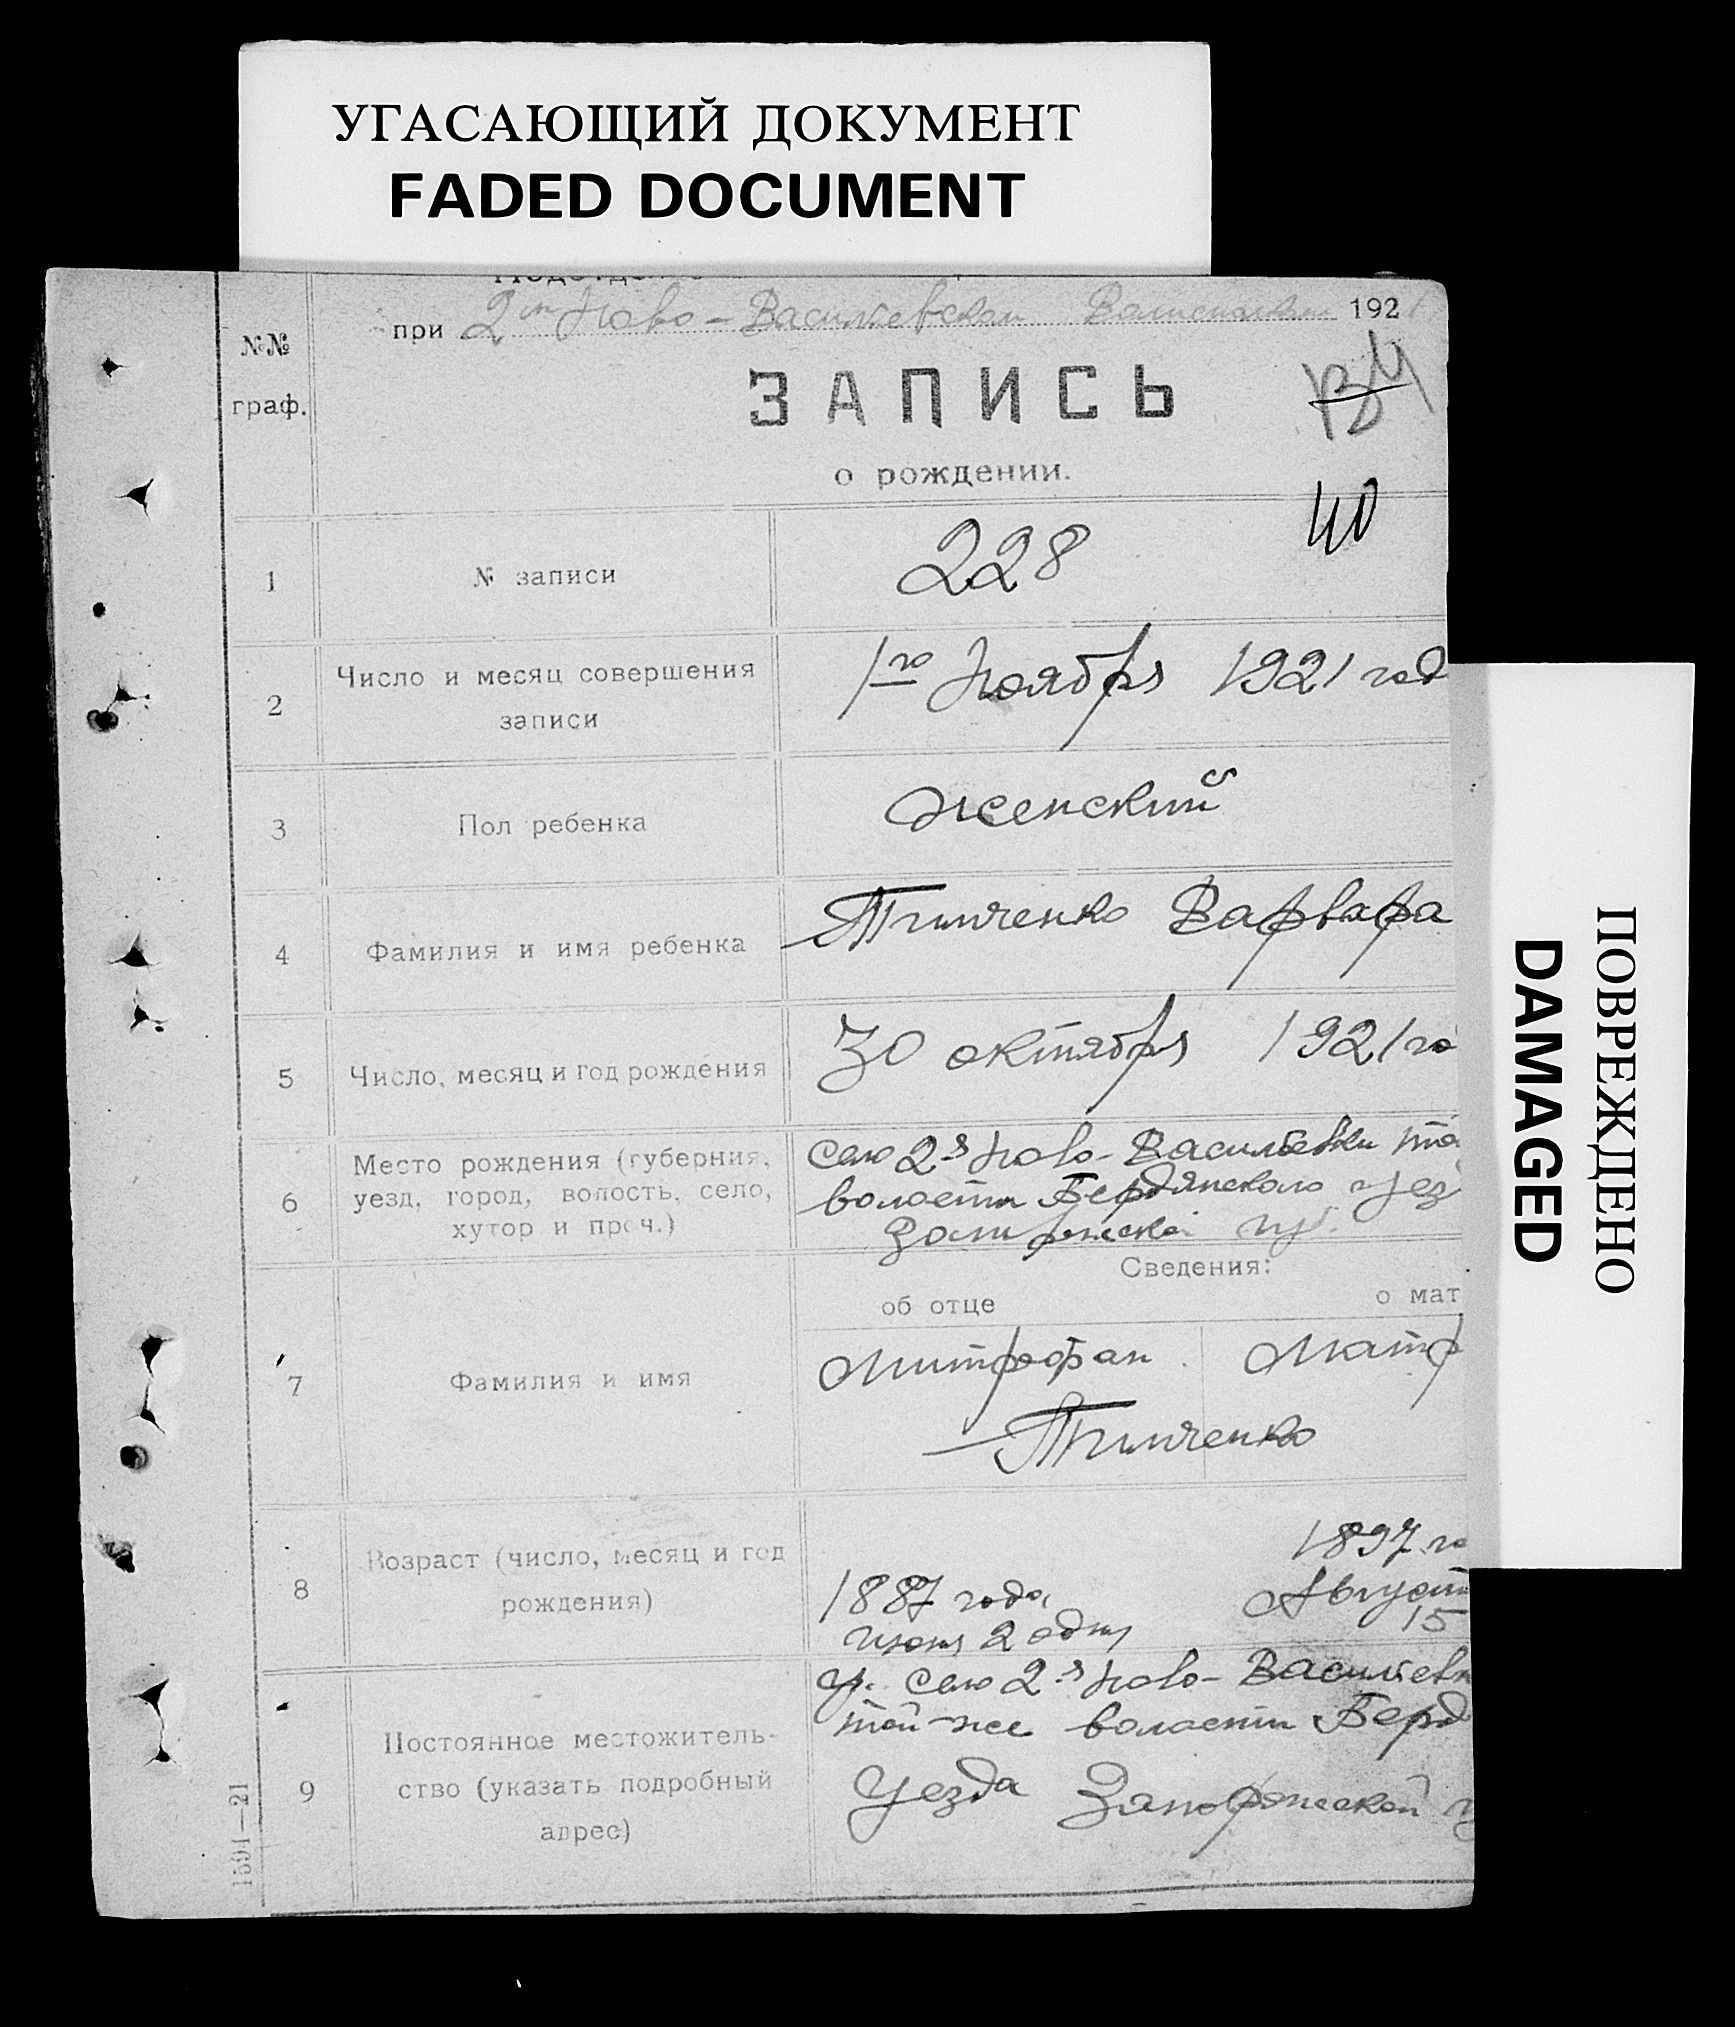 УГАСАЮЩИЙ ДОКУМЕНТ
FADED DOCUMENT
при 2й Ново-Васильевской 192
№№
граф.
ЗАПИСЬ
о рождении.
40
1 № записи 228
2 Число и месяц совершения
записи
1го Ноября 1921 год
3 Пол ребенка женский
4 Фамилия и имя ребенка Тимченко Варвара
5 Число, месяц и год рождения 30 октября 1921 го
6 Место рождения (губерния,
уезд, город, волость, село,
хутор и проч.)
село 2я Ново-Васильевки
волости Бердянского уез
губ.
Сведения:
об отце о мат
7 Фамилия и имя
Митрофан Матр
Тимченко
8 Возраст (число, месяц и год
рождения)
1887 года
июня 2 дня
1897 го
Август
15
9 Постоянное местожитель-
ство (указать подробный
адрес)
село 2я Ново-Васильевк
той-же волости Берд
Уезда Запорожской г
1591—21
ПОВРЕЖДЕНО
DAMAGED